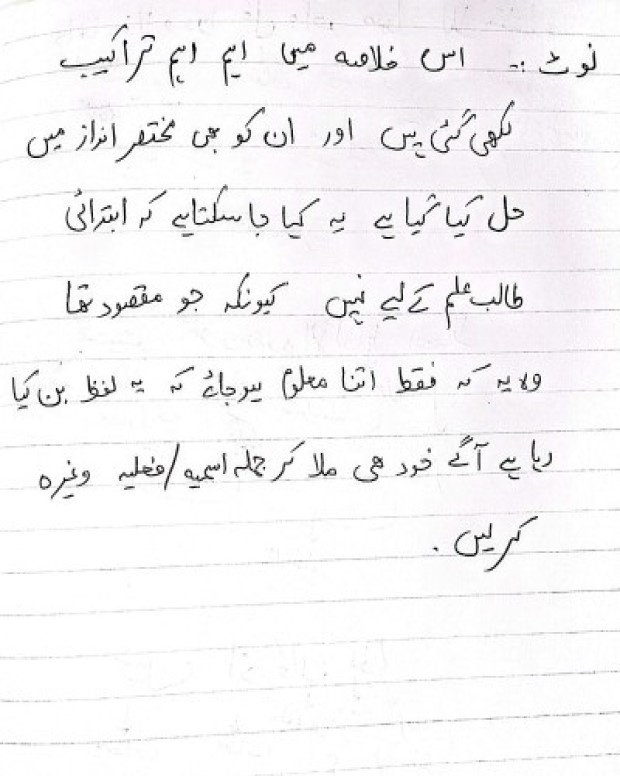 نوٹ :- اس خلاصہ میں اہم اہم تراکیب
لکھی گئی ہیں اور ان کو بھی مختصر انداز میں
حل کیا گیا ہے یہ کہا جا سکتا ہے کہ ابتدائی
طالب علم کے لیے نہیں کیونکہ جو مقصود تھا
وہ یہ کہ فقط اتنا معلوم ہو جائے کہ یہ لفظ بن کیا
رہا ہے آگے خود ھی ملا کر جملہ اسمیہ/فعلیہ وغیرہ
کر لیں .